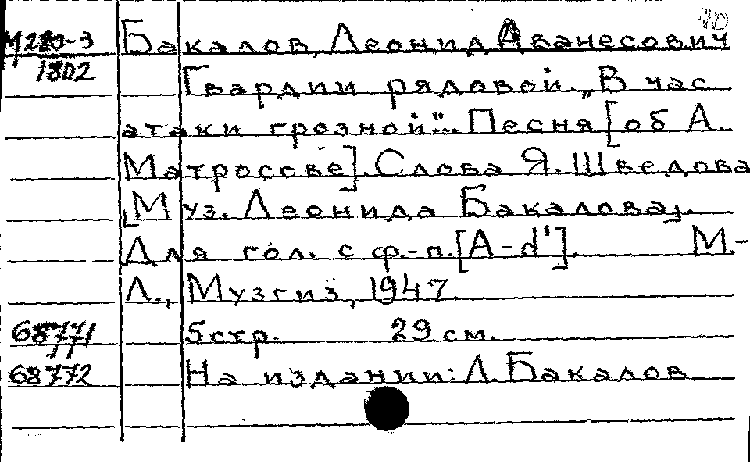 М280-3 Бакалов, Леонид Аванесович
1802 Гвардии рядовой. „В час
атаки грозной"... Песня [об А.
Матросове]. Слова Я. Шведова
[Муз. Леонида Бакалова].
Для гол. с ф.-п. [A-d']. М.-
Л., Музгиз, 1947.
68771 5 стр. 29 см.
68772 На издании: Л. Бакалов